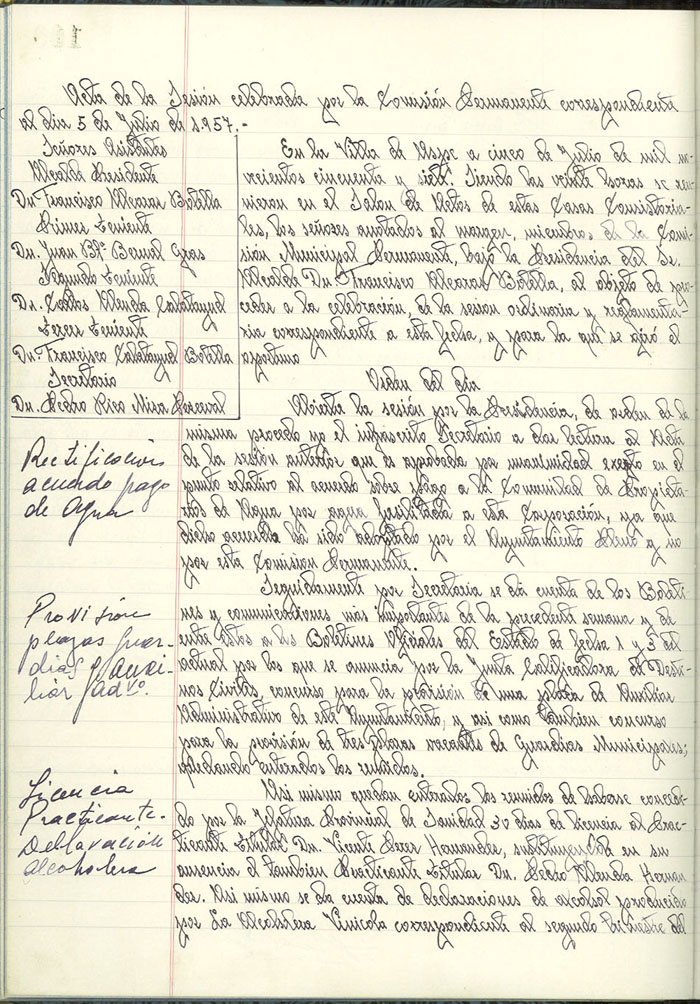 Acta de la Sesión celebrada por la Comisión Permanente correspondiente
al dia 5 de Julio de 1.957.-
Señores Asistentes
Alcalde Presidente
Dn. Francisco Alcaraz Botella
Primer Teniente
Dn. Juan Bta Bernal Gras
Segundo Teniente
Dn. Carlos Almela Calatayud
Tercer Teniente
Dn. Francisco Calatayud Botella
Secretario
Dn. Pedro Rico Mira Perceval
En la Villa de Aspe a cinco de Julio de mil no-
vecientos cincuenta y siete. Siendo las veinte horas se reu-
nieron en el Salon de Actos de estas Casas Consistoria-
les, los señores anotados al margen, miembros de la Comi-
sión Municipal Permanente, bajo la Presidencia del Sr.
Alcalde Dn. Francisco Alcaraz Botella, al objeto de pro-
ceder a la celebración, de la sesion ordinaria y reglamenta-
ria correspondiente a esta fecha, y para la que se giró el
oportuno
Orden del dia
Abierta la sesión por la Presidencia, de orden de la
misma procedo yo el infrascrito Secretario a dar lectura al Acta
de la sesión anterior que es aprobada por unanimidad excepto en el
punto relativo al acuerdo sobre pago a la Comunidad de Propieta-
rios de Agua por agua facilitada a esta Corporación, ya que
dicho acuerdo ha sido adoptado por el Ayuntamiento Pleno y no
por esta Comision Permanente.
Rectificacion
acuerdo pago
de Agua
Seguidamente por Secretaria se dá cuenta de los Boleti-
nes y comunicaciones más importantes de la precedente semana y de
entre estos a los Boletines Oficiales del Estado de fecha 1 y 3 del
actual por los que se anuncia por la Junta Calificadora de Desti-
nos Civiles, concurso para la provisión de una plaza de Auxiliar
Administrativo de este Ayuntamiento, y asi como tambien concurso
para la provisión de tres plazas vacantes de Guardias Municipales;
quedando enterados los reunidos.
Provisión
plazas guar-
dias y auxi-
liar Advo.
Asi mismo quedan enterados los reunidos de haberse concedi-
do por la Jefatura Provincial de Sanidad 30 dias de licencia al Prac-
ticante titular Dn. Vicente Perez Hernandez, sustituyendole en su
ausencia el tambien Practicante titular Dn. Pedro Almela Hernan
dez. Asi mismo se da cuenta de declaraciones de alcohol producido
por La Alcoholera Vinicola correspondiente al segundo trimestre del
Licencia
Practicante.
Declaración
alcoholera